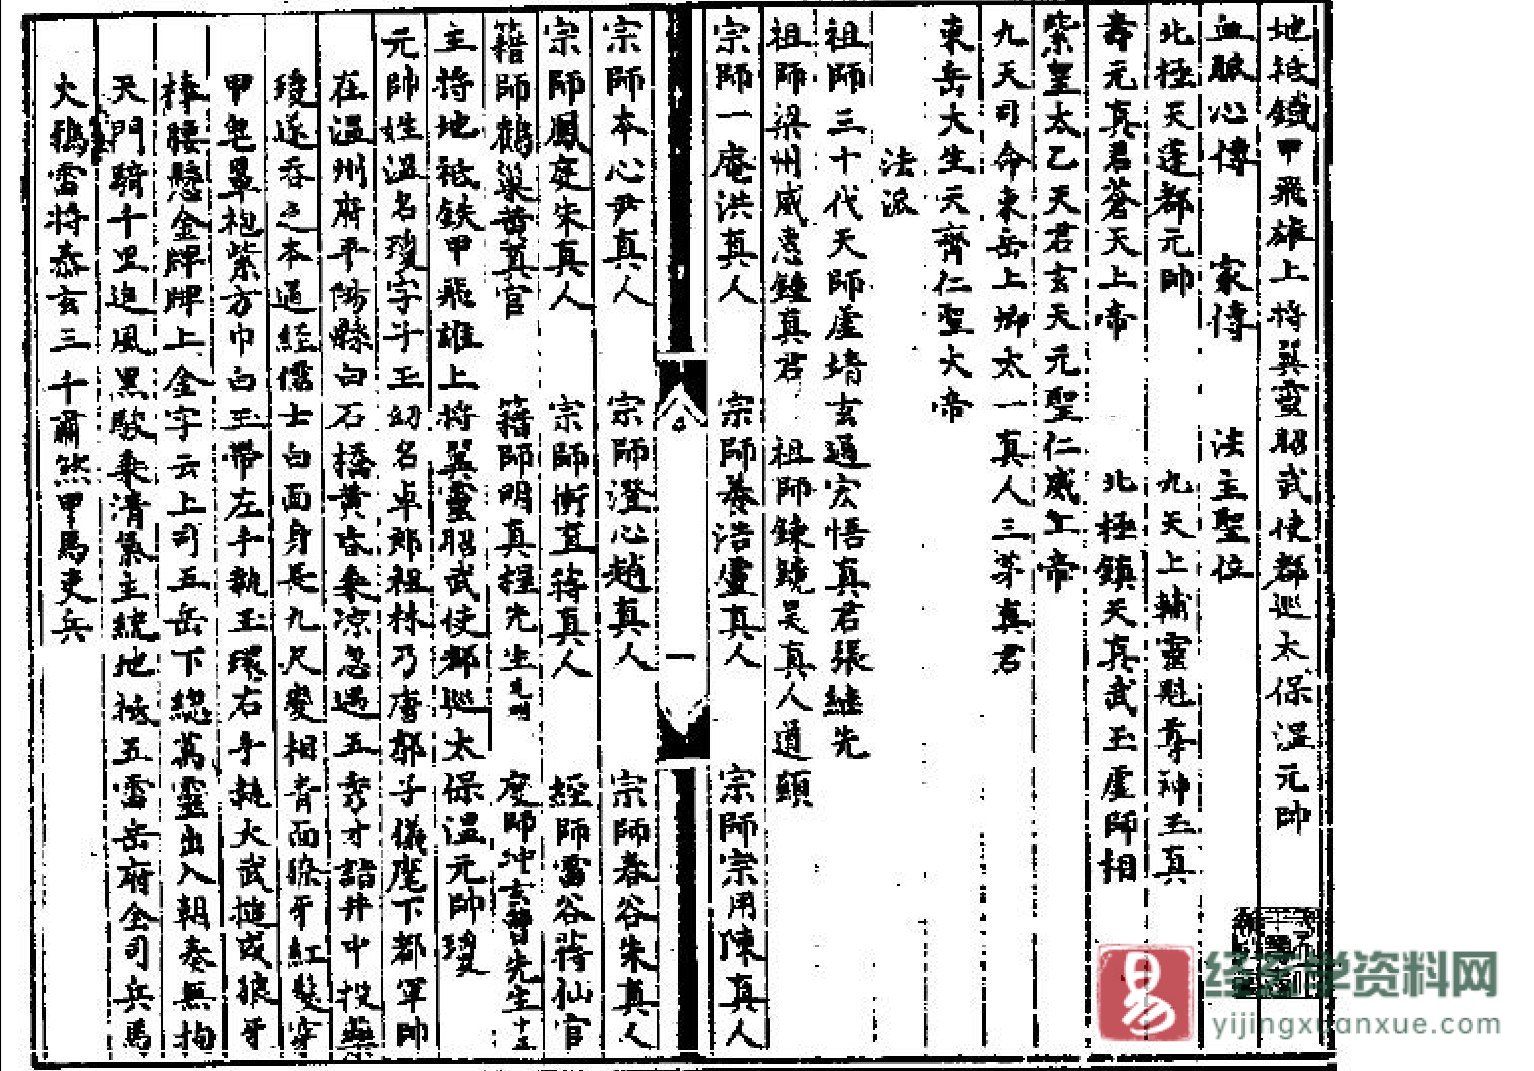 地祇鐵甲飛雄上将翼靈昭武使都巡太保溫元帥
血脉心傳 家傳 法主聖位
北極天蓬都元帥 九天上輔靈魁尊神玉真
壽元真君蒼天上帝 北極鎮天真武玉虛師相
紫皇太乙天君玄天元聖仁威上帝
九天司命東岳上卿太一真人三茅真君
東岳大生天齊仁聖大帝
法派
祖師三十代天師虛靖玄通宏悟真君張継先
祖師梁州威惠鍾真君 祖師鍊鐃吴真人道顯
宗師一庵洪真人 宗師養浩盧真人 宗師宗用陳真人
一
宗師本心尹真人 宗師澄心趙真人 宗師春谷朱真人
宗師鳳庭朱真人 宗師衝真蒋真人 經師雷谷蒋仙官
籍師鶴巢黄真官 籍師明真程先生 度師冲玄 先生
主将地祇鉄甲飛雄上将翼靈昭武使都巡太保溫元帥瓊
元帥姓溫名瓊字子玉幼名卓郎祖林乃唐郭子儀麾下都軍帥
在溫州府平陽縣白石橋黄昏乗凉忽遇五秀才詣井中投藥
瓊遂吞之本通經儒士白面身長九尺變相青面獠牙紅髮穿
甲皂罩袍紫方巾白玉帶左手執玉環右手執大武搥或狼牙
棒腰懸金牌牌上金字云上司五岳下総萬靈出入朝奏無拘
天門騎千里追風黒駿乗清 主統地祇五雷岳府全司兵馬
大鴉雷将泰玄三千肅然甲馬吏兵
易
经
学资料网
yijingxuanxue.com